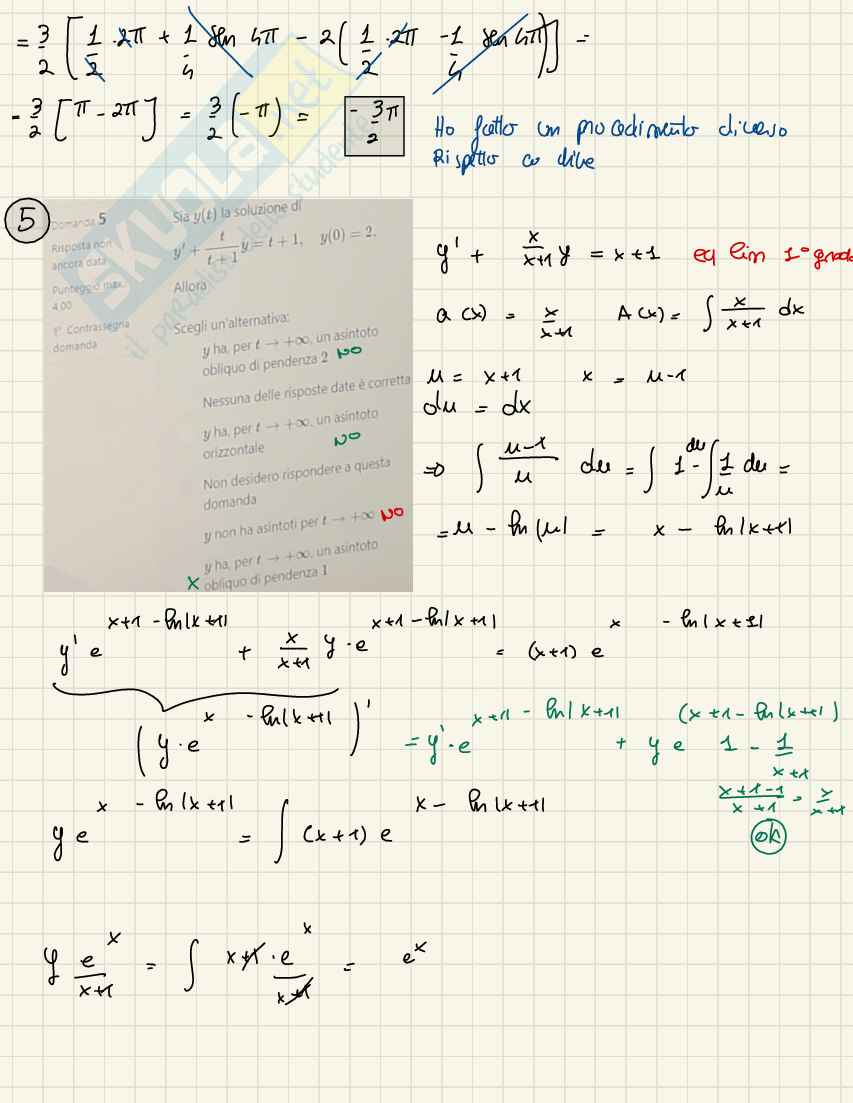 = 3/2 [ 1/2 · 2π + 1/4 sen 4π - 2 ( 1/2 · 2π - 1/4 sen 4π ) ] =
- 3/2 [ π - 2π ] = 3/2 ( - π ) = - 3/2 π
Ho fatto un procedimento diverso
Rispetto
SKUOLA.net
il paradiso dello studente
5
Domanda 5
Risposta non
ancora data
Punteggio max.
4,00
Contrassegna
domanda
Sia y(t) la soluzione di
y' + t/(t+1) y = t + 1, y(0) = 2.
Allora
Scegli un'alternativa:
y ha, per t → +∞, un asintoto
obliquo di pendenza 2 NO
Nessuna delle risposte date è corretta
y ha, per t → +∞, un asintoto
orizzontale NO
Non desidero rispondere a questa
domanda
y non ha asintoti per t → +∞ NO
y ha, per t → +∞, un asintoto
X obliquo di pendenza 1
y' + x/(x+1) y = x+1 eq lin 1° grado
a(x) = x/(x+1) A(x) = ∫ x/(x+1) dx
u = x+1 x = u-1
du = dx
⇒ ∫ (u-1)/u du = ∫ 1 du - ∫ 1/u du =
= u - ln|u| = x - ln|x+1|
y' e^(x+1 - ln|x+1|) + x/(x+1) y · e^(x+1 - ln|x+1|) = (x+1) e^(x - ln|x+1|)
( y · e^(x - ln|x+1|) )' = y' · e^(x+1 - ln|x+1|) + y e^(x+1 - ln|x+1|) 1 - 1/(x+1)
(x+1-1)/(x+1) = x/(x+1)
ok
y e^(x - ln|x+1|) = ∫ (x+1) e^(x - ln|x+1|)
y e^x/(x+1) = ∫ x+1 · e^x/(x+1) = e^x